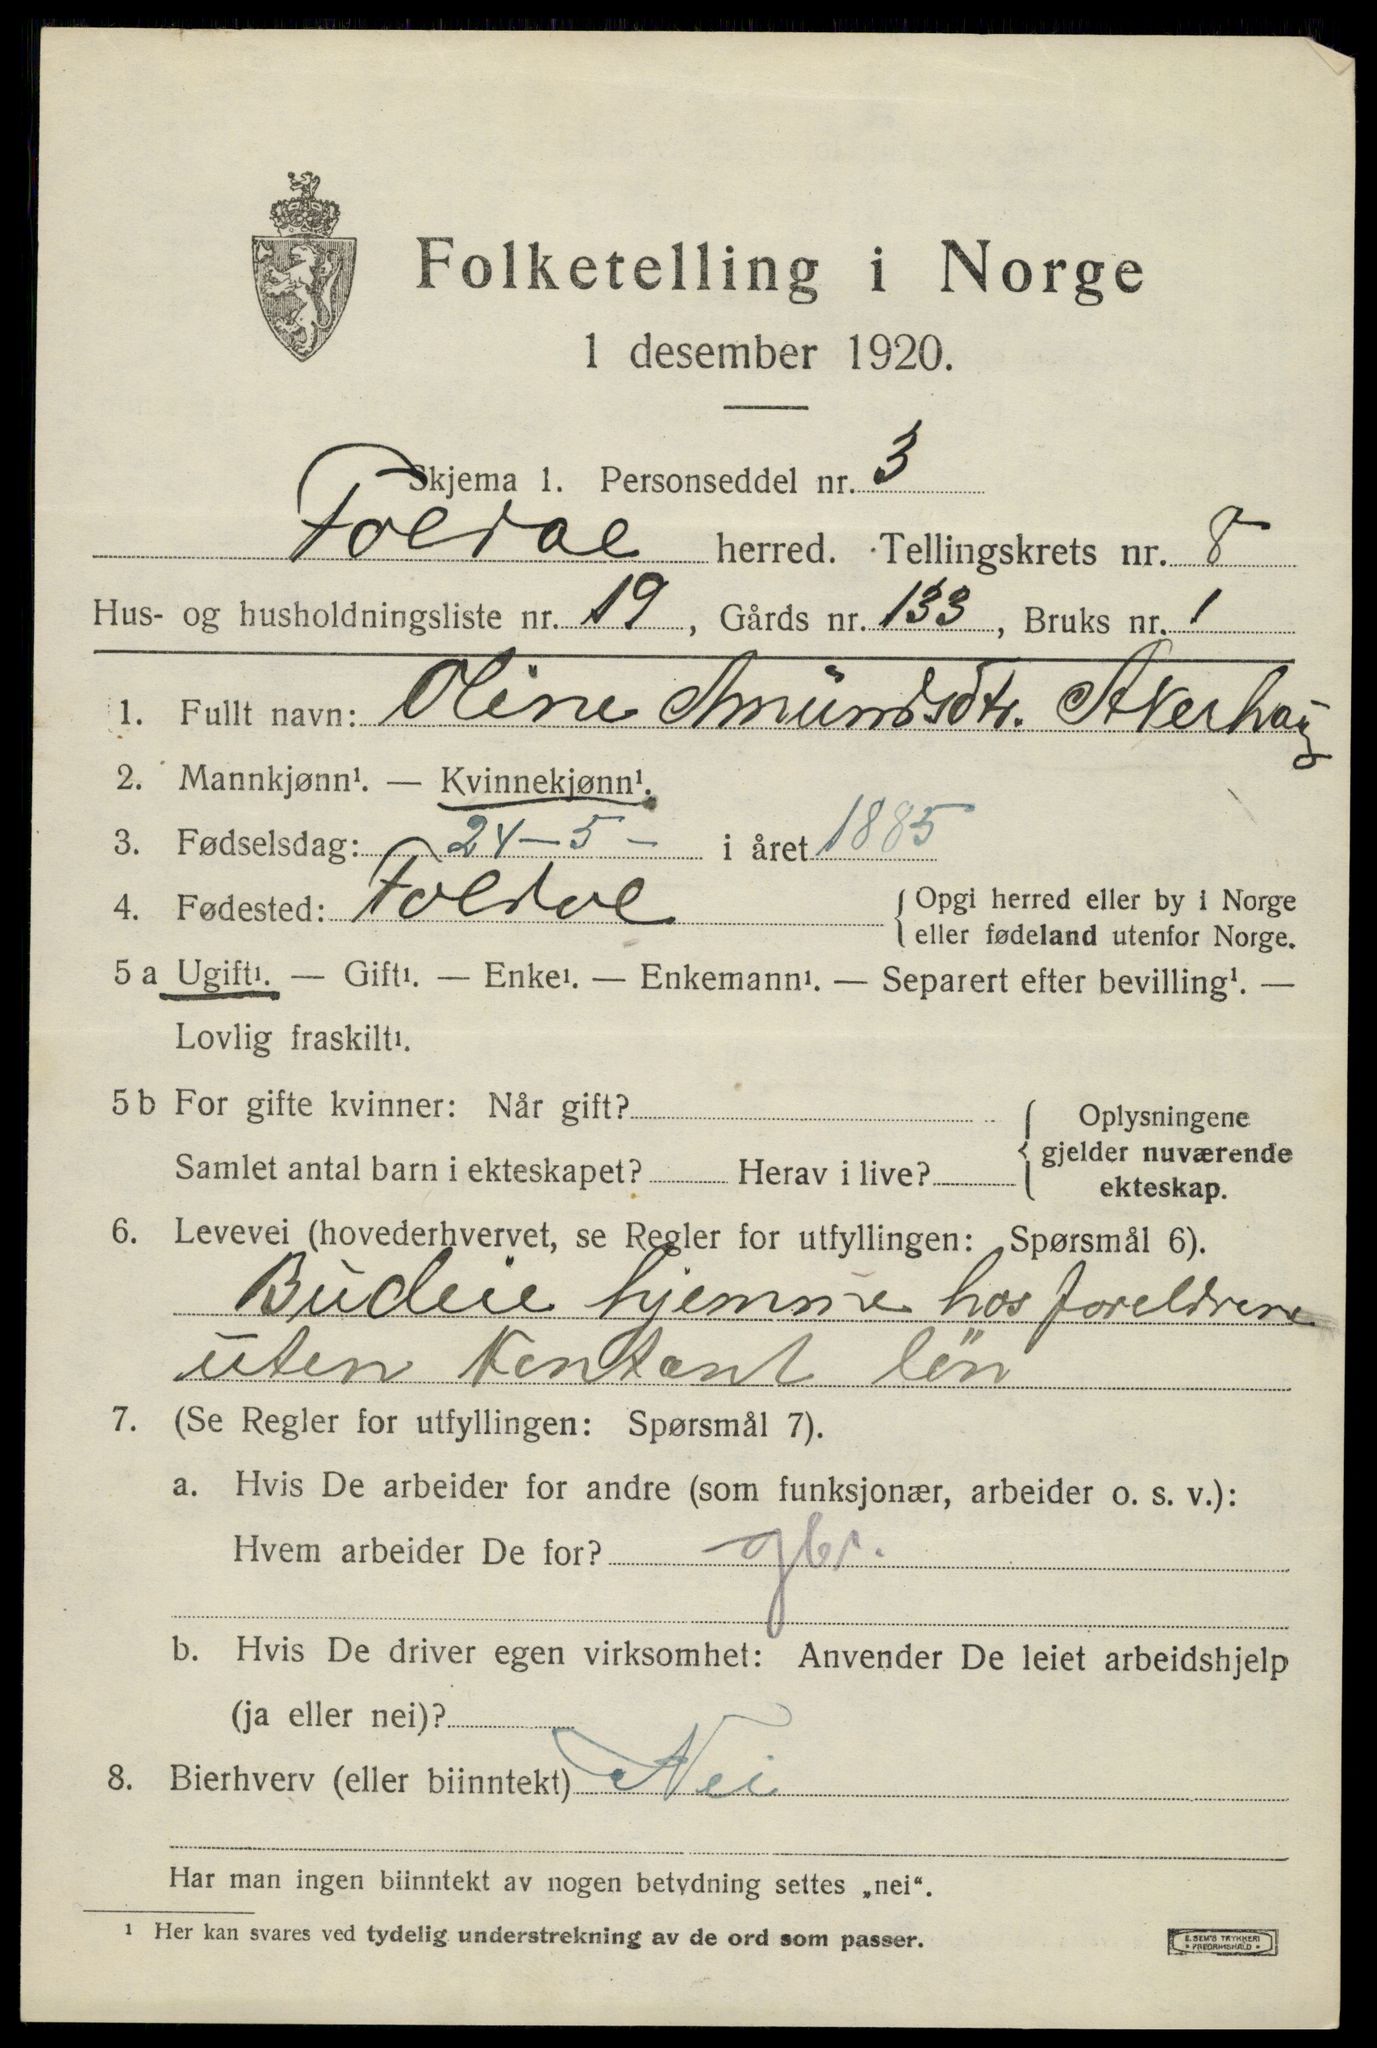 Folketelling i Norge
1 desember 1920.
Skjema 1. Personseddel nr. 3
Foldal herred. Tellingskrets nr. 8
Hus- og husholdningsliste nr. 19, Gårds nr. 133, Bruks nr. 1
1. Fullt navn: Oline Amundsdtr. Akerhaug
2. Mannkjønn¹. — Kvinnekjønn¹.
3. Fødselsdag: 24-5- i året 1885
4. Fødested: Foldal { Opgi herred eller by i Norge
eller fødeland utenfor Norge.
5 a Ugift¹. — Gift¹. — Enke¹. — Enkemann¹. — Separert efter bevilling¹. —
Lovlig fraskilt¹.
5 b For gifte kvinner: Når gift? { Oplysningene
gjelder nuværende
ekteskap.
Samlet antal barn i ekteskapet? Herav i live?
6. Levevei (hovederhvervet, se Regler for utfyllingen: Spørsmål 6).
Budeie hjemme hos foreldrene
uten kontant løn
7. (Se Regler for utfyllingen: Spørsmål 7).
a. Hvis De arbeider for andre (som funksjonær, arbeider o. s. v.):
Hvem arbeider De for? gbr.
b. Hvis De driver egen virksomhet: Anvender De leiet arbeidshjelp
(ja eller nei)?
8. Bierhverv (eller biinntekt) Nei
Har man ingen biinntekt av nogen betydning settes „nei“.
¹ Her kan svares ved tydelig understrekning av de ord som passer.
E. SEM'S TRYKKERI
• FREDRIKSHALD •